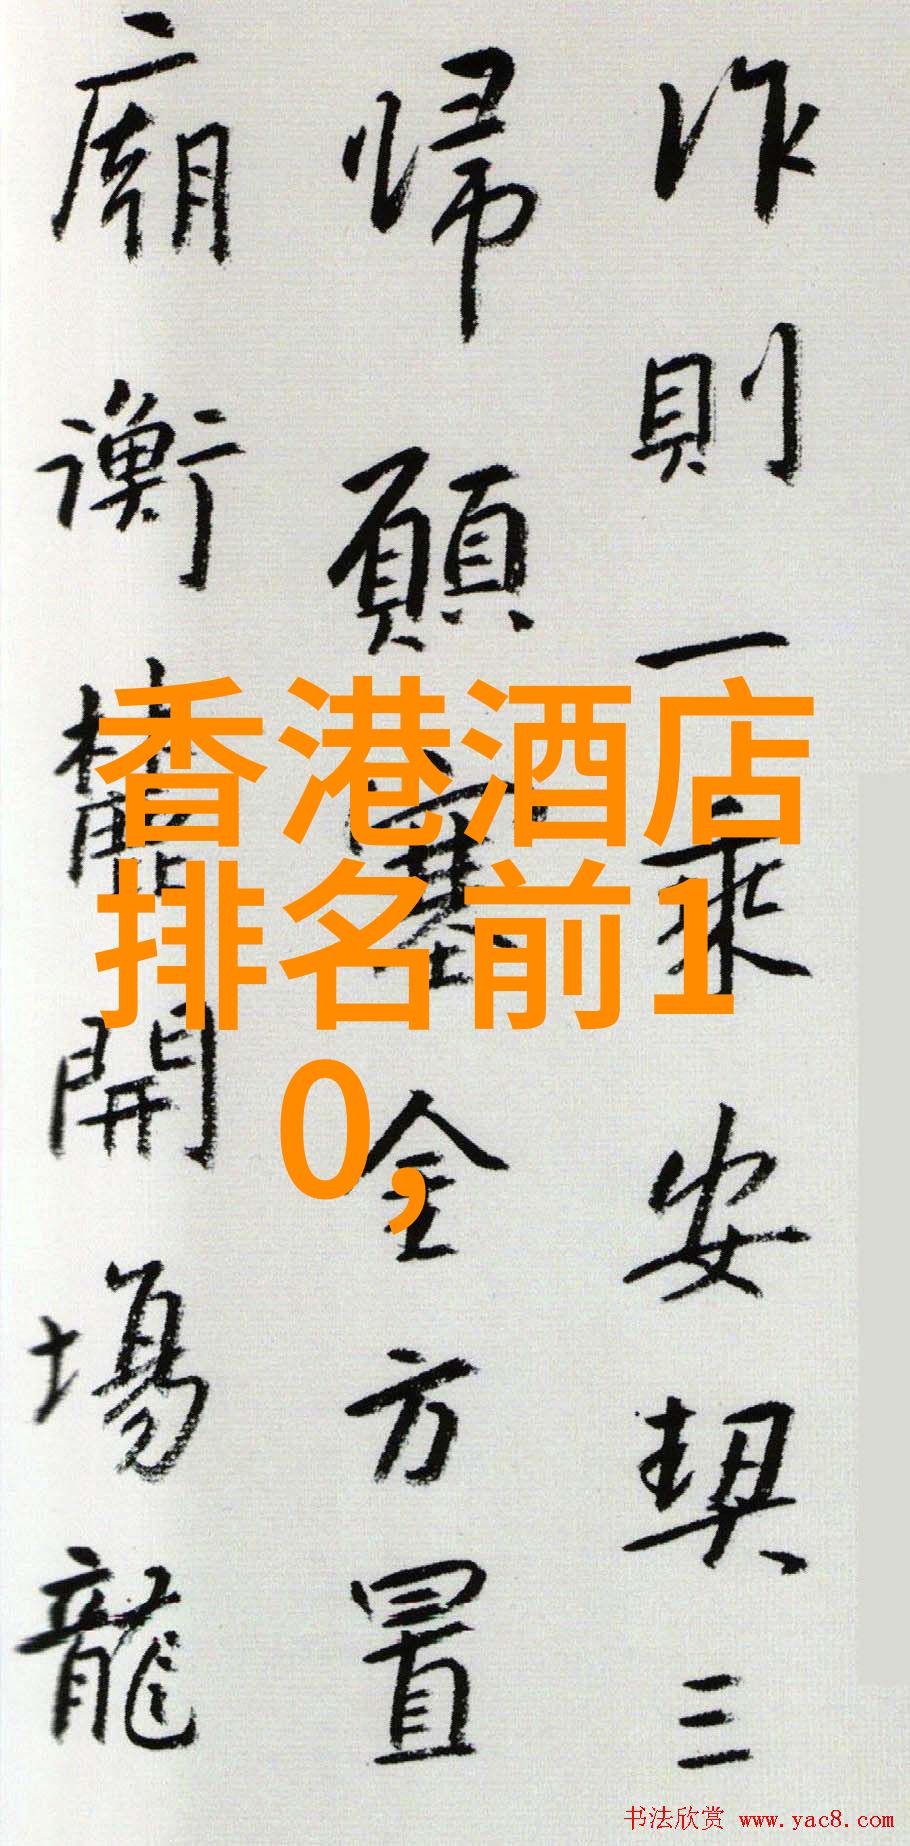 作則一乘安契三
歸願塞全方置
廟衡麓開場龍
香港酒店
排名前1
0,
书法欣赏 www.yac8.com